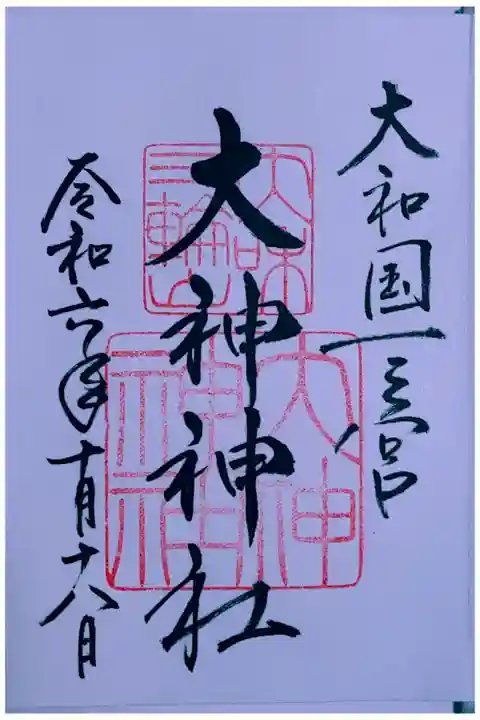 大和国一之宮
大神神社
令和六年十月十八日
三輪山
大神神社